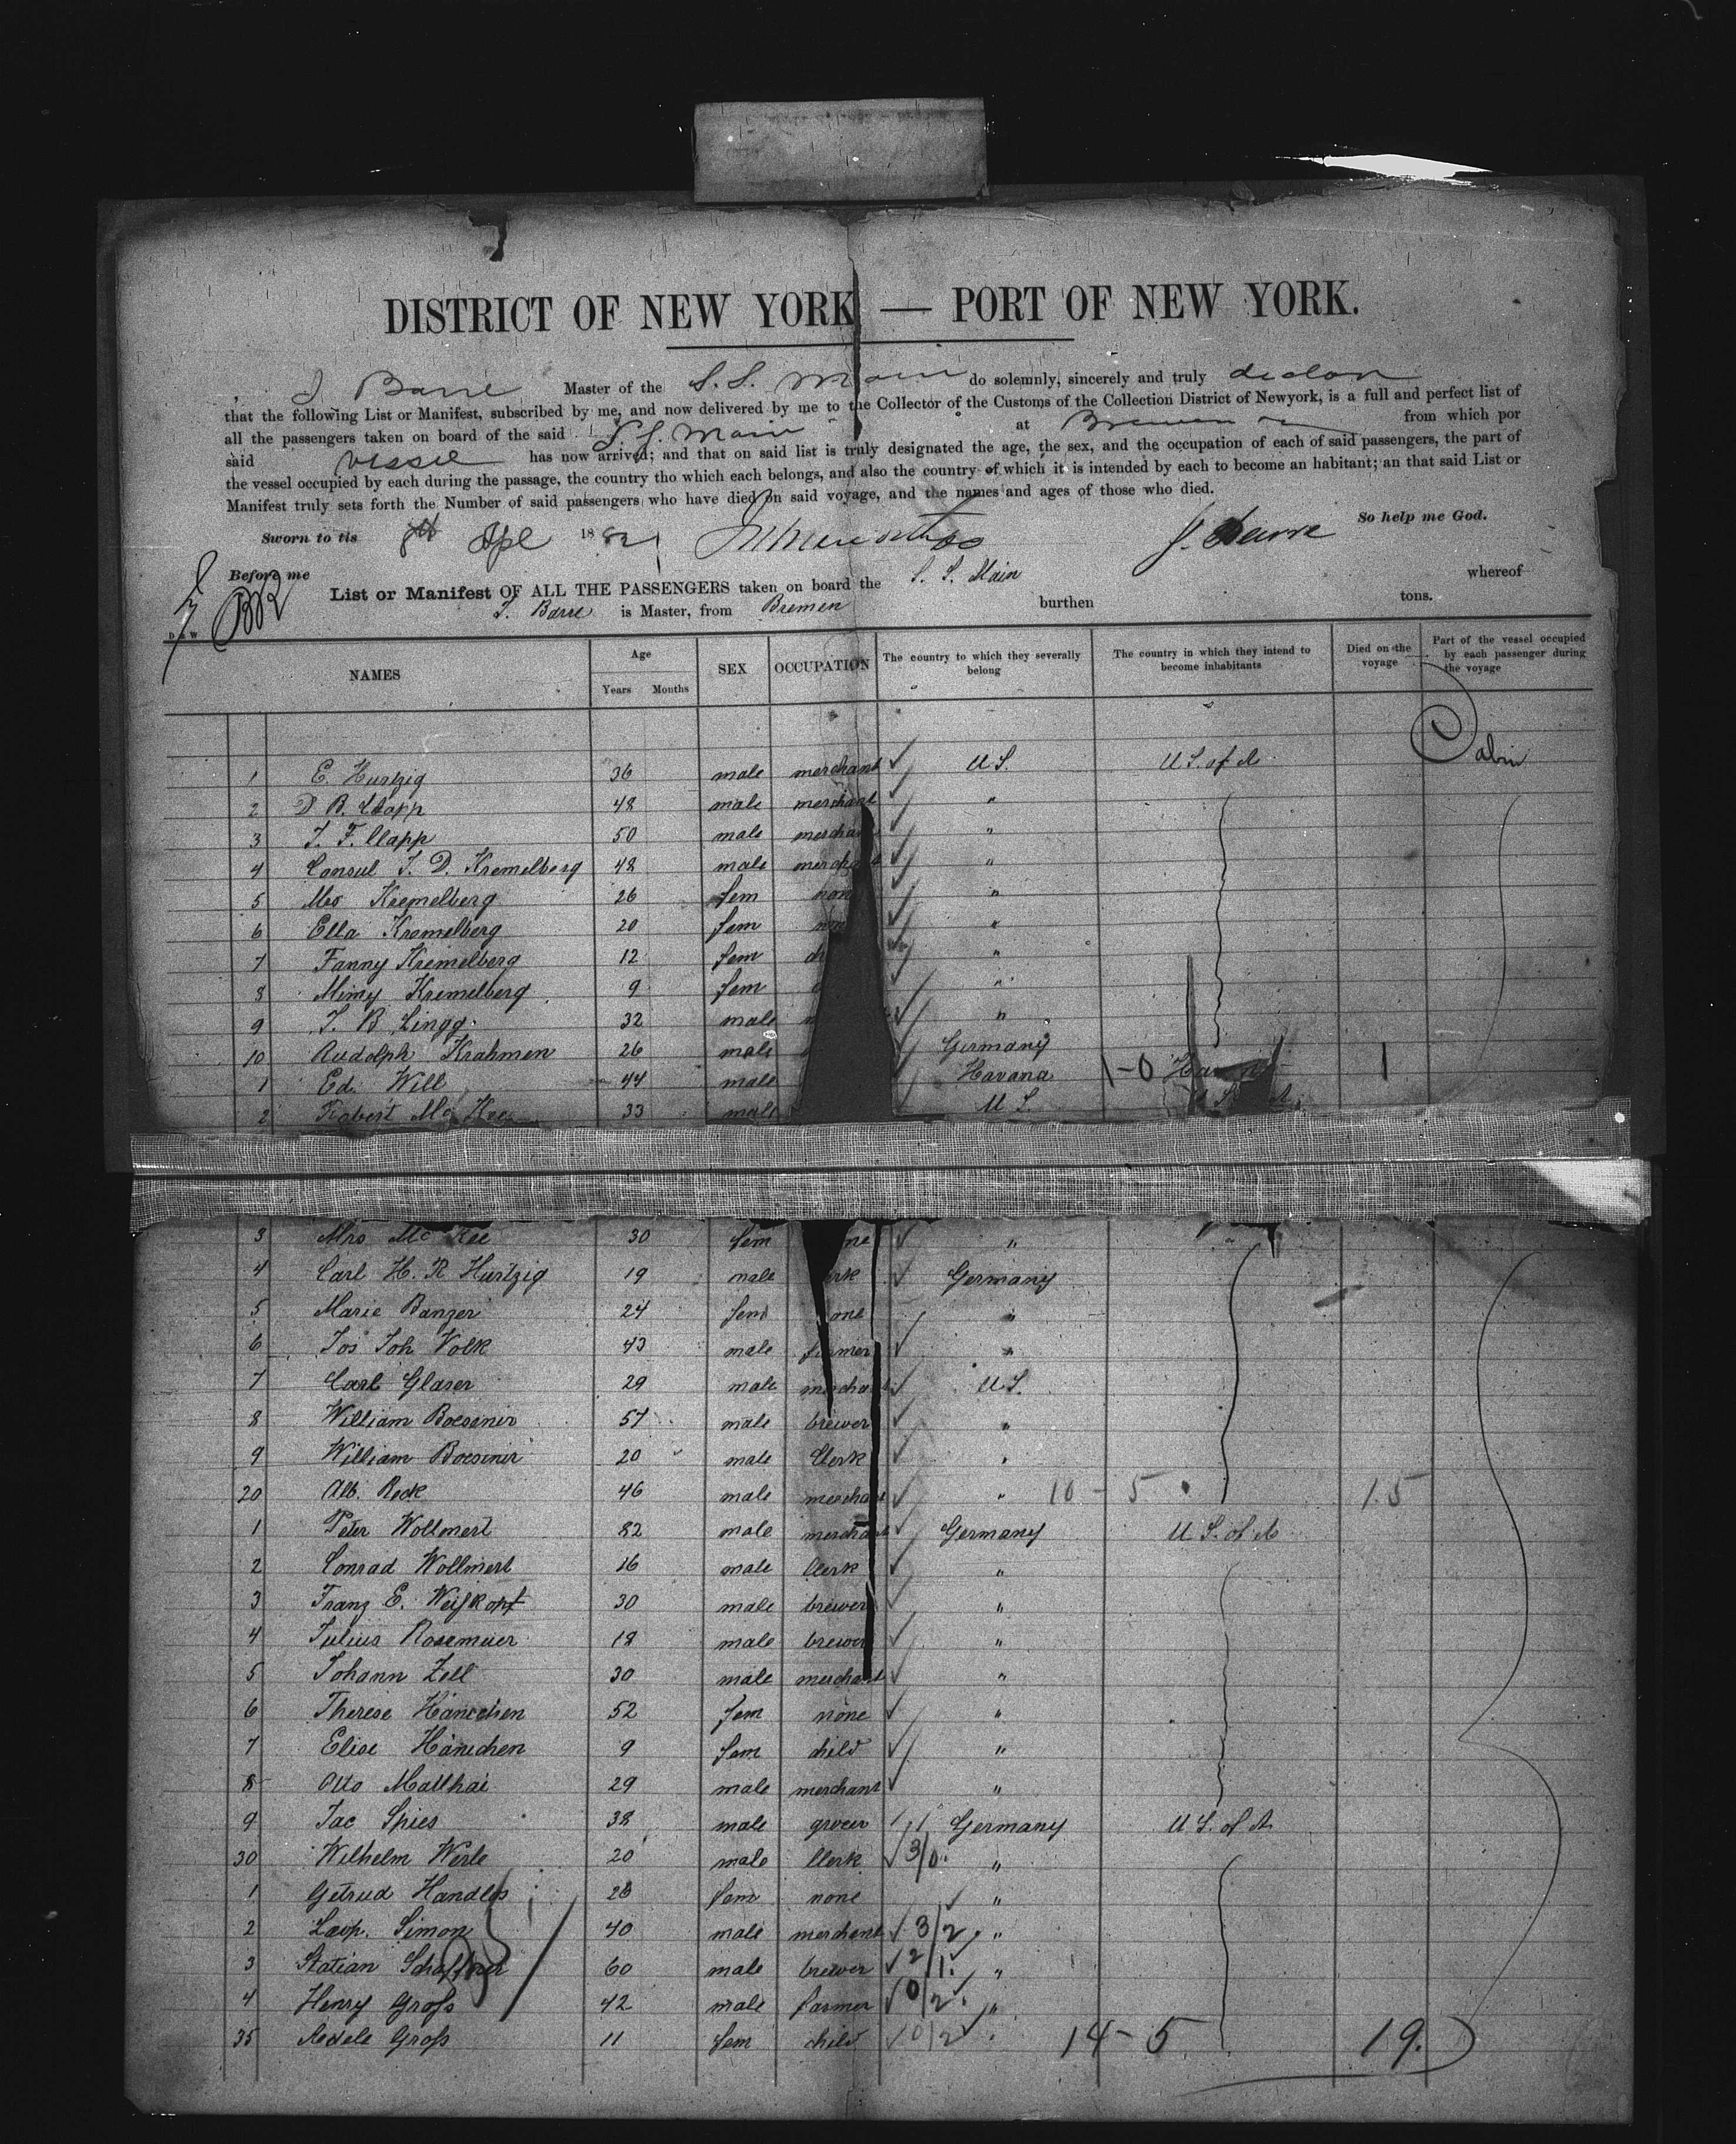 DISTRICT OF NEW YORK — PORT OF NEW YORK.
I Barre Master of the S. S. Main do solemnly, sincerely and truly
that the following List or Manifest, subscribed by me, and now delivered by me to the Collector of the Customs of the Collection District of Newyork, is a full and perfect list of
all the passengers taken on board of the said S. S. Main at Bremen from which por
said vessel has now arrived; and that on said list is truly designated the age, the sex, and the occupation of each of said passengers, the part of
the vessel occupied by each during the passage, the country tho which each belongs, and also the country of which it is intended by each to become an habitant; an that said List or
Manifest truly sets forth the Number of said passengers who have died on said voyage, and the names and ages of those who died.
So help me God.
Sworn to tis 8th Apl 1882
Before me
List or Manifest OF ALL THE PASSENGERS taken on board the S. S. Main whereof
I. Barre is Master, from Bremen burthen tons.
NAMES Age Years Months SEX OCCUPATION The country to which they severally belong The country in which they intend to become inhabitants Died on the voyage Part of the vessel occupied by each passenger during the voyage
1 E. Hurtzig 36 male merchant U S. U S. of A Cabin
2 D. B. Clapp 48 male merchant "
3 I. F. Clapp 50 male merchant "
4 Consul I. D. Kremelberg 48 male merchant "
5 Mrs Kremelberg 26 fem none "
6 Ella Kremelberg 20 fem "
7 Fanny Kremelberg 12 fem "
8 Mimy Kremelberg 9 fem "
9 I. B Lingg. 32 male "
10 Rudolph Krahmen 26 male Germany
1 Ed. Will 44 male Havana 1-0 1
2 Robert Mc Kee 33 male U S.
3 Mrs Mc Kee 30 fem "
4 Carl H. R Hurtzig 19 male Germany
5 Marie Banzer 24 fem "
6 Jos Joh Volk 43 male farmer "
7 Carl Glaser 29 male merchant U S.
8 William Boesener 57 male brewer "
9 William Boesener 20 male Clerk "
20 Alb. Reck 46 male merchant " 10 - 5 15
1 Peter Wollmert 82 male merchant Germany U S. of A
2 Conrad Wollmert 16 male Clerk "
3 Franz E. Weiskopf 30 male brewer "
4 Julius Rosemeier 18 male brewer "
5 Johann Zell 30 male merchant "
6 Therese Hänichen 52 fem none "
7 Elise Hänichen 9 fem child "
8 Otto Matthai 29 male merchant "
9 Jac Spies 38 male grocer Germany U S. of A
30 Wilhelm Werle 20 male Clerk 3/0 "
1 Getrud Handlos 26 fem none "
2 Leop. Simon 40 male merchant 3/2 "
3 Statian Schaffner 60 male brewer 2/1 "
4 Henry Groß 42 male farmer 0/2 "
35 Adele Groß 11 fem child 0/2 " 14 - 5 19.